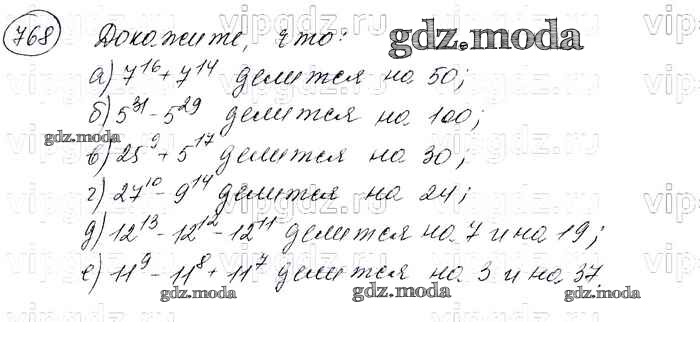 768 Докажите, что:
gdz.moda
а) 7^16 + 7^14 делится на 50;
б) 5^31 - 5^29 делится на 100;
gdz.moda
в) 25^9 + 5^17 делится на 30;
г) 27^10 - 9^14 делится на 24;
д) 12^13 - 12^12 - 12^11 делится на 7 и на 19;
е) 11^9 - 11^8 + 11^7 делится на 3 и на 37.
gdz.moda gdz.moda gdz.moda
gdz.moda
vipgdz.ru